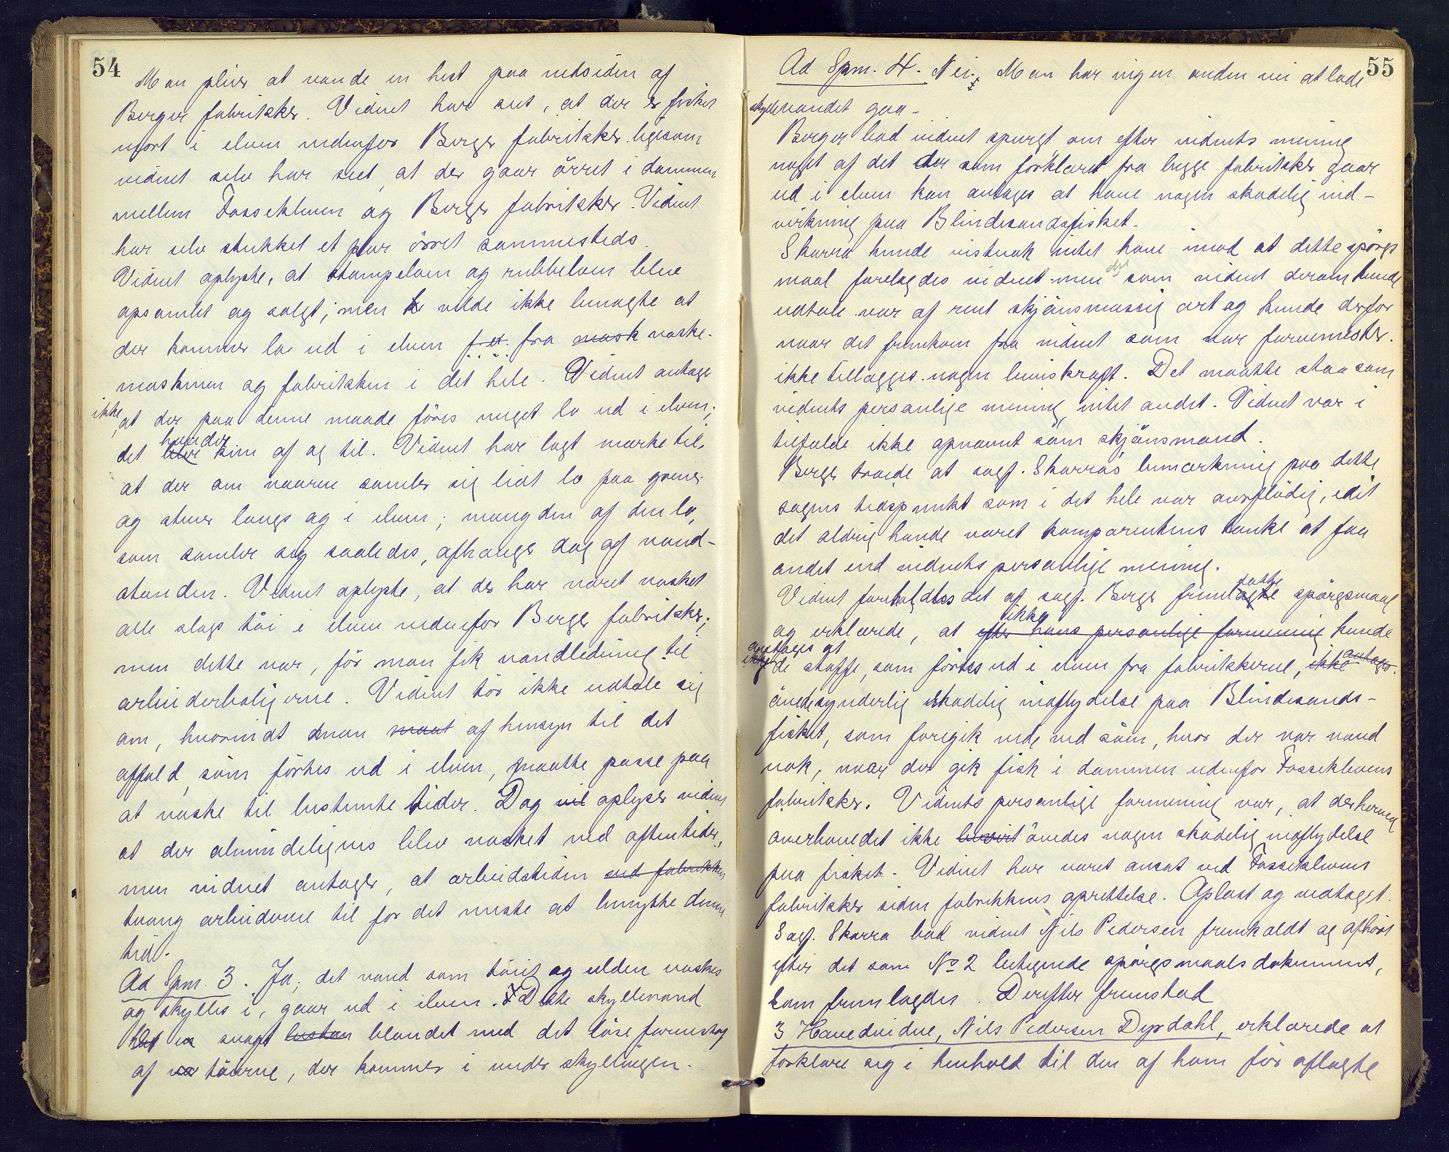 54
Man pleier at vande en hest paa nedsiden af
Berger fabrikker. Vidnet har set, at der er fisket
mort i elven nedenfor Berger fabrikker ligesom
vidnet selv har seet at der gaar örret i dammen
mellem Fossekleven og Berger fabrikker. Vidnet
har selv stukket et par örret sammesteds.
Vidnet oplyste, at stampeloen og rubbeloen blev
opsamlet og solgt; men vilde ikke benægte at
der kommer lo ud i elven fra vaske-
maskinen og fabrikken i det hele. Vidnet antager
ikke, at der paa denne maade föres meget lo ud i elven;
det hænder kun af og til. Vidnet har lagt mærke til,
at der om vaaren samler sig lidt lo paa grener
og stener langs og i elven; mængden af den lo,
som samler sig saaledes, afhænger dog af vand-
standen. Vidnet oplyste, at der har været vasket
alle slags töi i elven nedenfor Berger fabrikker;
men dette var, för man fik vandledning til
arbeiderboligerne. Vidnet tör ikke udtale sig
om, hvorvidt man af hensyn til det
affald, som förtes ud i elven, maatte passe paa
at vaske til bestemte tider. Dog oplyser vidnet
at der almindeligvis blev vasket ved aftentider,
men vidnet antager, at arbeidstiden
tvang arbeiderne til for det meste at benytte denne
tid.
Ad Spm. 3. Ja, det vand som töiet og ulden vaskes
og skylles i, gaar ud i elven. Dette skyllevand
er svagt blandet med det löse farvestof
af töierne, der kommer i under skyllingen.
55
Ad Spm. 4. Nei. Man har ingen anden vei at lade
skyllevandet gaa.
Berger bad vidnet spurgt, om efter vidnets mening
noget af det der som forklaret fra begge fabrikker gaar
ud i elven kan antages at have nogen skadelig ind-
virkning paa Blindesandsfisket.
Skarra kunde vistnok intet have imod at dette spörgs
maal forelagdes vidnet men som vidnet derom kunde
udtale var af rent skjönsmæssig art og kunde derfor
naar det fremkom fra vidnet som var farvemester
ikke tillægges nogen beviskraft. Det maatte staa som
vidnets personlige mening intet andet. Vidnet var i
tilfælde ikke opnævnt som skjönsmand.
Berger troede at sagf. Skarras bemærkning paa dette
sagens tidspunkt som i det hele var overflödig, idet
det aldrig havde været komparentens tanke at faa
andet end vidnets personlige mening.
Vidnet foreholdtes det af sagf. Berger fremsatte spörgsmaal
og erklærede, at ikke efter hans personlige formening kunde
antages at
de stoffe, som förtes ud i elven fra fabrikkerne,
övede synderlig skadelig indflydelse paa Blindesands-
fisket, som foregik nede ved söen, hvor der var vand
nok, naar der gik fisk i dammen udenfor Fosseklevens
fabrikker. Vidnets personlige formening var, at der herved
overhovedet ikke övedes nogen skadelig indflydelse
paa fisket. Vidnet har været ansat ved Fosseklevens
fabrikker siden fabrikkens oprettelse. Oplæst og vedtaget.
Sagf. Skarra bad vidnet Nils Pedersen fremkaldt og afhört
efter det som No 2 betegnede spörgsmaalsdokument,
som fremlagdes. Derefter fremstod
3 Hovedvidne, Nils Pedersen Dyrdahl, erklærede at
forklare sig i henhold til den af ham för aflagte